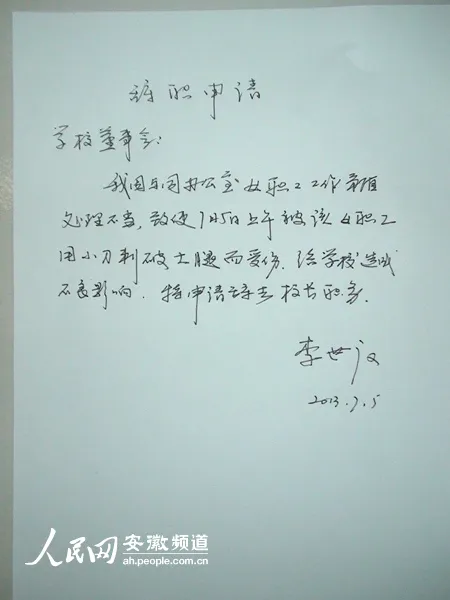 辞职申请
学校董事会:
我因与同办公室女职工工作矛盾
处理不当,致使7月5日上午被该女职工
用小刀刺破大腿而受伤.给学校造成
不良影响.特申请辞去校长职务.
李世
2013.7.5
人民网 安徽频道
ah.people.com.cn